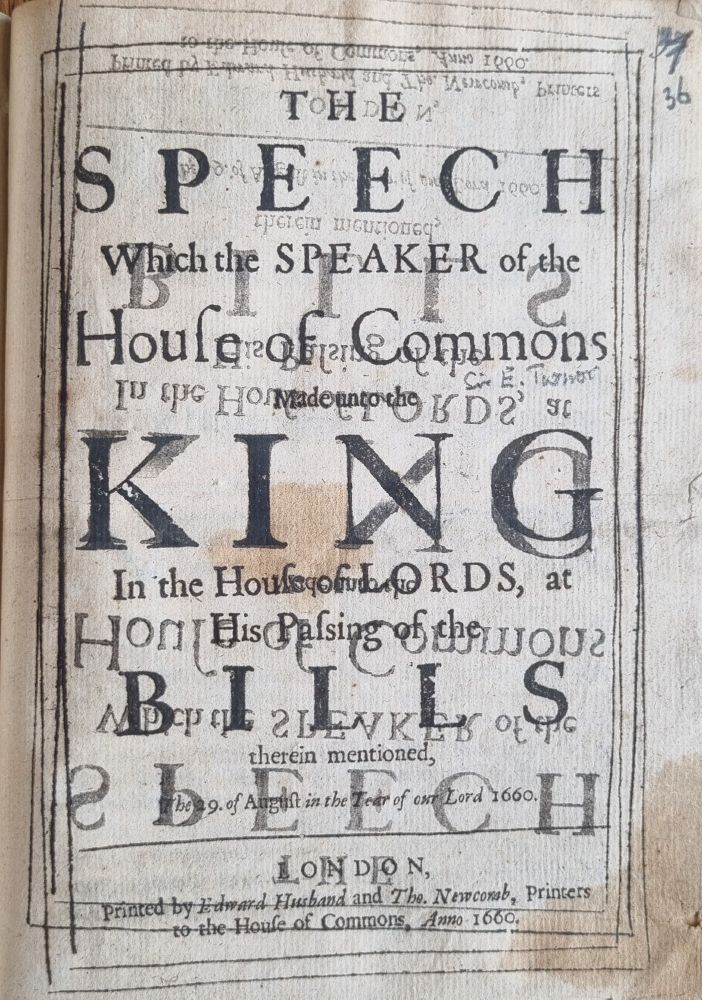 36
THE
SPEECH
Which the SPEAKER of the
Houſe of Commons
Made unto the
KING
In the Houſe of LORDS, at
His Paſsing of the
BILLS
therein mentioned,
The 29. of Auguſt in the Year of our Lord 1660.
LONDON,
Printed by Edward Husband and Tho. Newcomb, Printers
to the Houſe of Commons, Anno 1660.